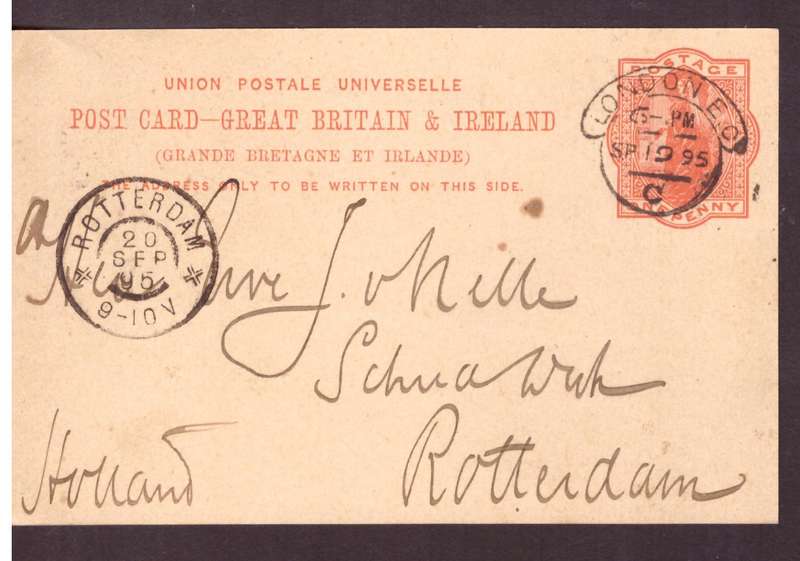 UNION POSTALE UNIVERSELLE
POST CARD—GREAT BRITAIN & IRELAND
(GRANDE BRETAGNE ET IRLANDE)
THE ADDRESS ONLY TO BE WRITTEN ON THIS SIDE.
POSTAGE
ONE PENNY
LONDON E.C
6-PM
SP 19 95
C
ROTTERDAM
20
SEP
95
9-10 V
J. v
Rotterdam
Holland